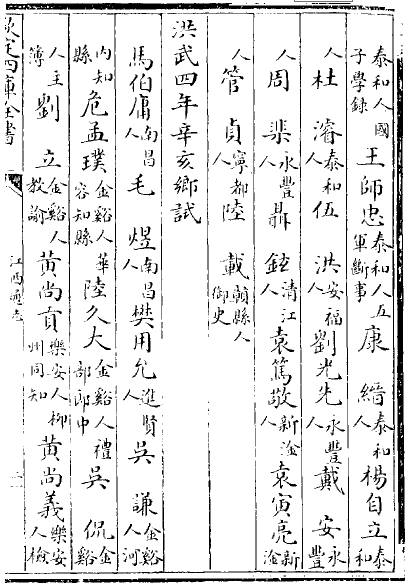 泰和人國子學録 王師忠 泰和人五軍斷事 康 縉 泰和人 楊自立 泰和
人 杜 濬 泰和人 伍 洪 安福人 劉光先 永豐人 戴 安 永豐
人 周 棐 永豐人 聶 鉉 清江人 袁篤敬 新淦人 袁寅亮 新淦
人 管 貞 寧都人 陸 載 贑縣人御史
洪武四年辛亥鄉試
馬伯庸 南昌人 毛 煜 南昌人 樊用允 進賢人 吳 謙 金谿人河
内知縣 危孟璞 金谿人華容知縣 陸久大 金谿人禮部郎中 吳 侃 金谿
人主簿 劉 立 金谿人教諭 黄尚貢 樂安人柳州同知 黄尚義 樂安人檢
欽定四庫全書 江西通志